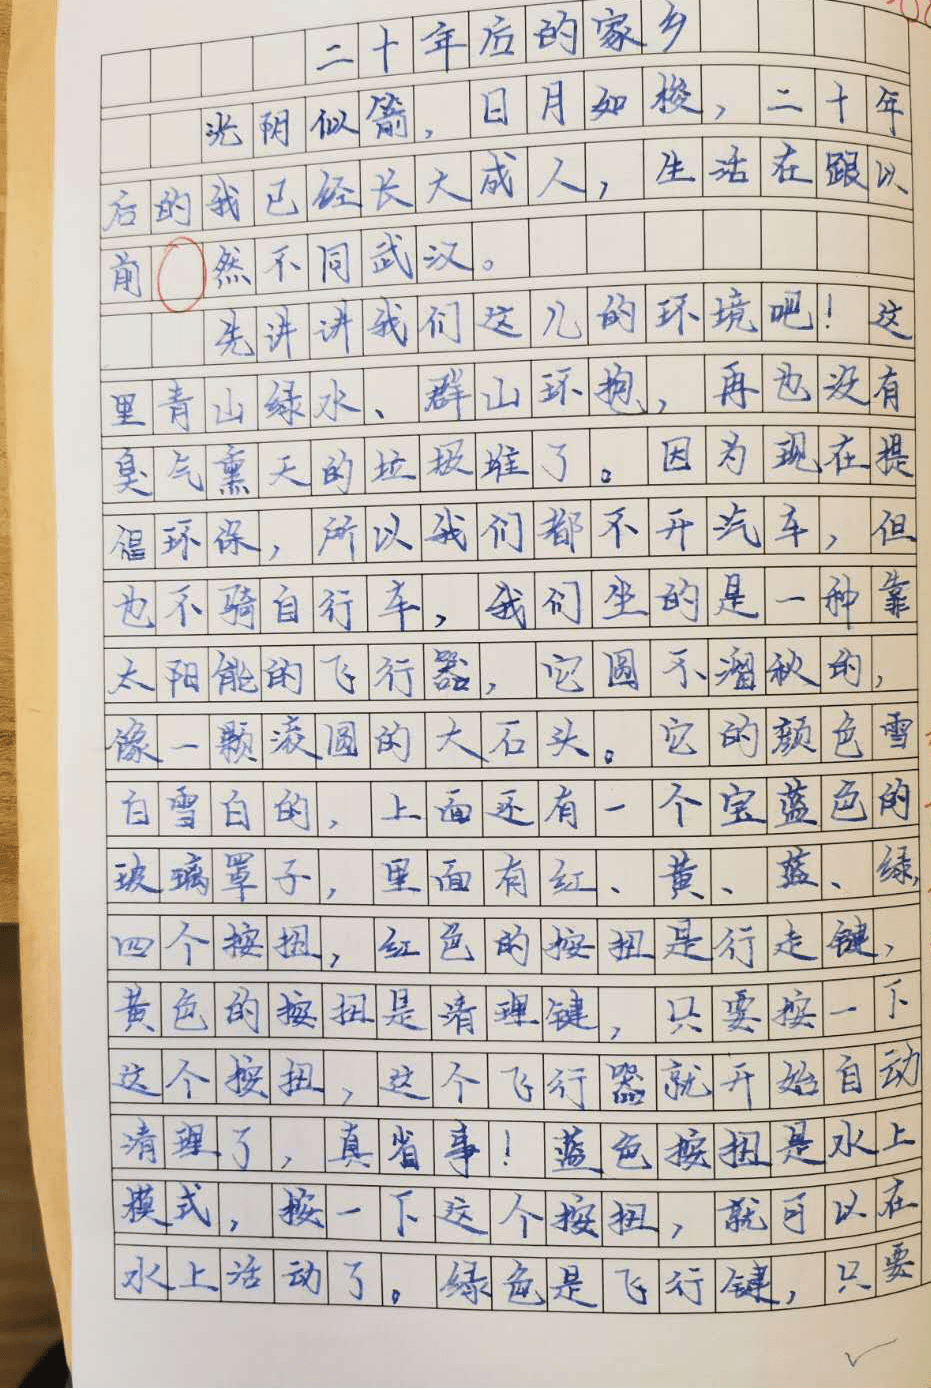 二十年后的家乡
光阴似箭，日月如梭，二十年
后的我已经长大成人，生活在跟以
前 然不同武汉。
先讲讲我们这儿的环境吧！这
里青山绿水、群山环抱，再也没有
臭气熏天的垃圾堆了。因为现在提
倡环保，所以我们都不开汽车，但
也不骑自行车，我们坐的是一种靠
太阳能的飞行器，它圆不溜秋的，
像一颗滚圆的大石头。它的颜色雪
白雪白的，上面还有一个宝蓝色的
玻璃罩子，里面有红、黄、蓝、绿，
四个按扭，红色的按扭是行走键，
黄色的按扭是清理键，只要按一下
这个按扭，这个飞行器就开始自动
清理了，真省事！蓝色按扭是水上
模式，按一下这个按扭，就可以在
水上活动了。绿色是飞行键，只要